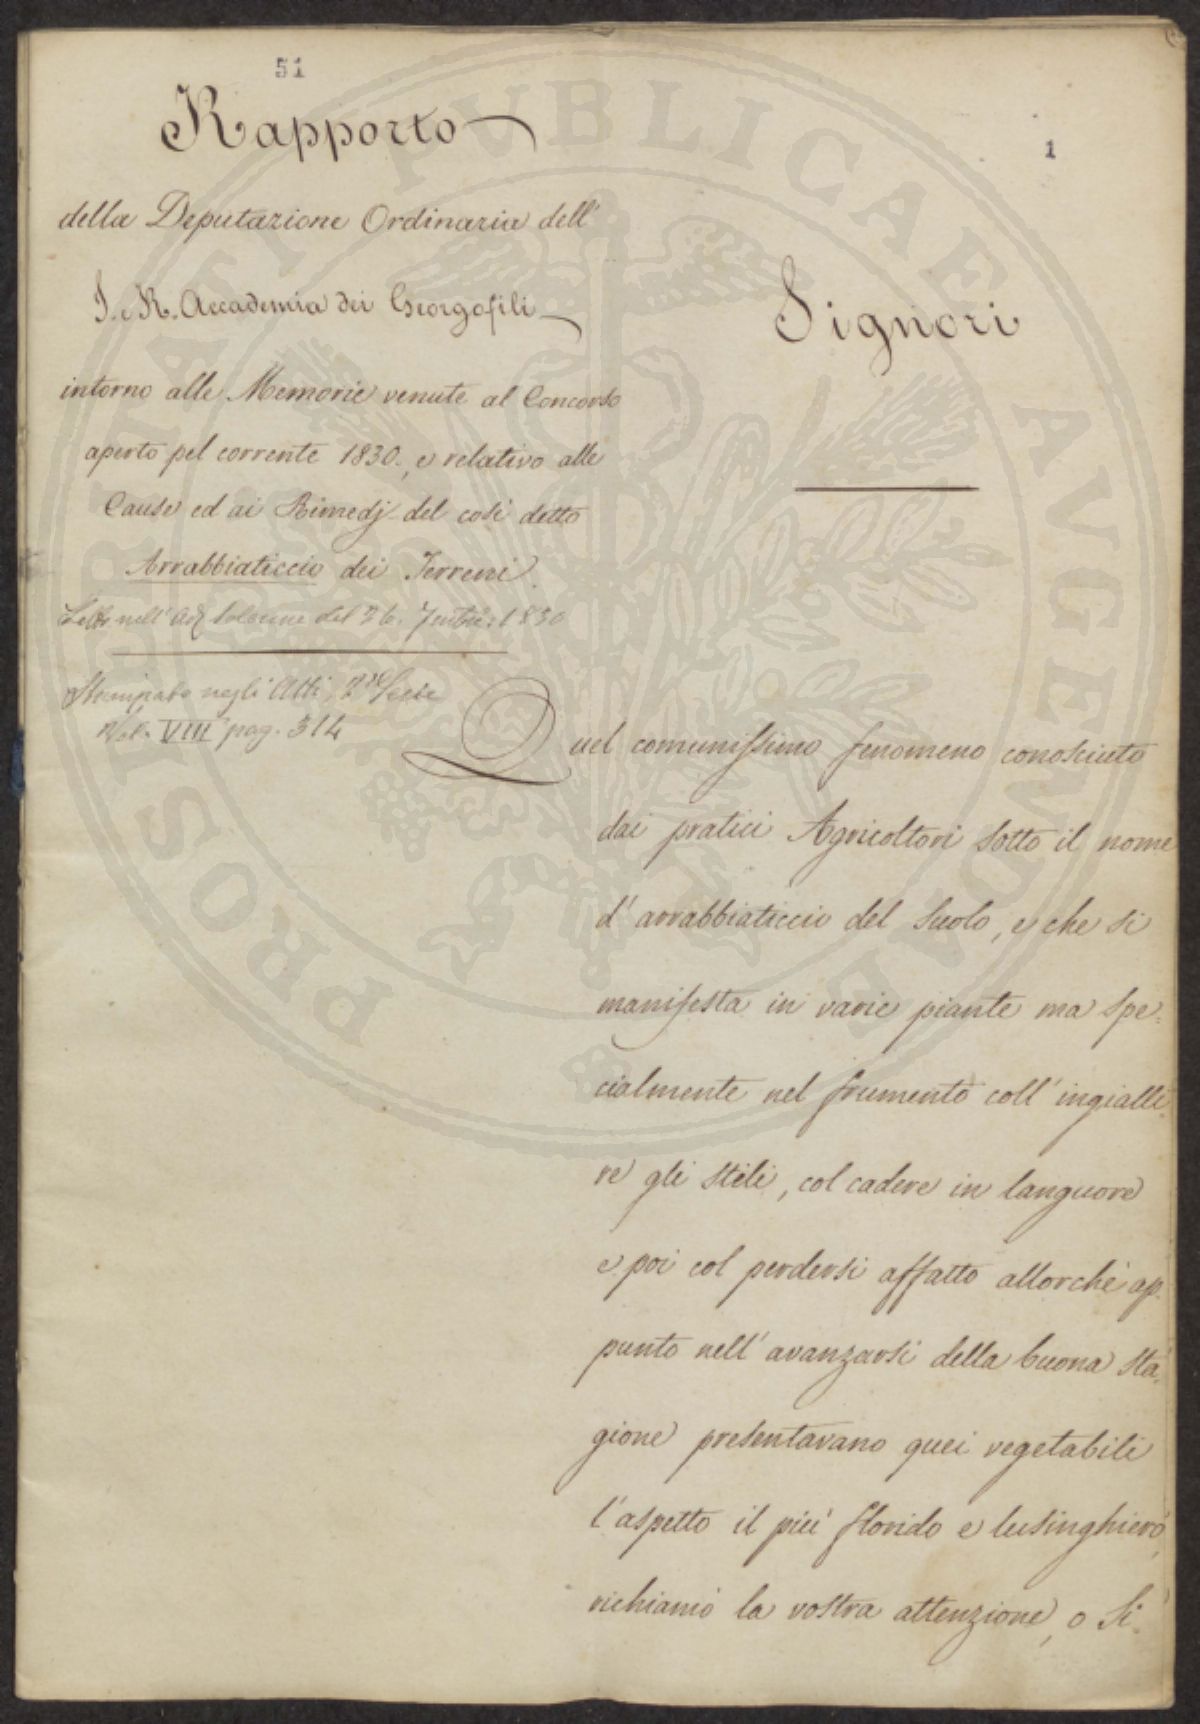 51
Rapporto
della Deputazione Ordinaria dell'
I. e R. Accademia dei Georgofili
intorno alle Memorie venute al Concorso
aperto pel corrente 1830., e relativo alle
Cause ed ai Rimedj del così detto
Arrabbiaticcio dei Terreni.
Letto nell' Adz solenne del 26. 7embre. 1830
Stampato negli Atti,
Vol. VIII pag. 314
1
Signori
Quel comunissimo fenomeno conosciuto
dai pratici Agricoltori sotto il nome
d' arrabbiaticcio del suolo, e che si
manifesta in varie piante ma spe=
cialmente nel frumento coll' ingialli=
re gli steli, col cadere in languore
e poi col perdersi affatto allorchè ap=
punto nell' avanzarsi della buona sta=
gione presentavano quei vegetabili
l' aspetto il più florido e lusinghiero,
richiamò la vostra attenzione, o Si=
PROSPERITATI PVBLICAE AVGENDAE